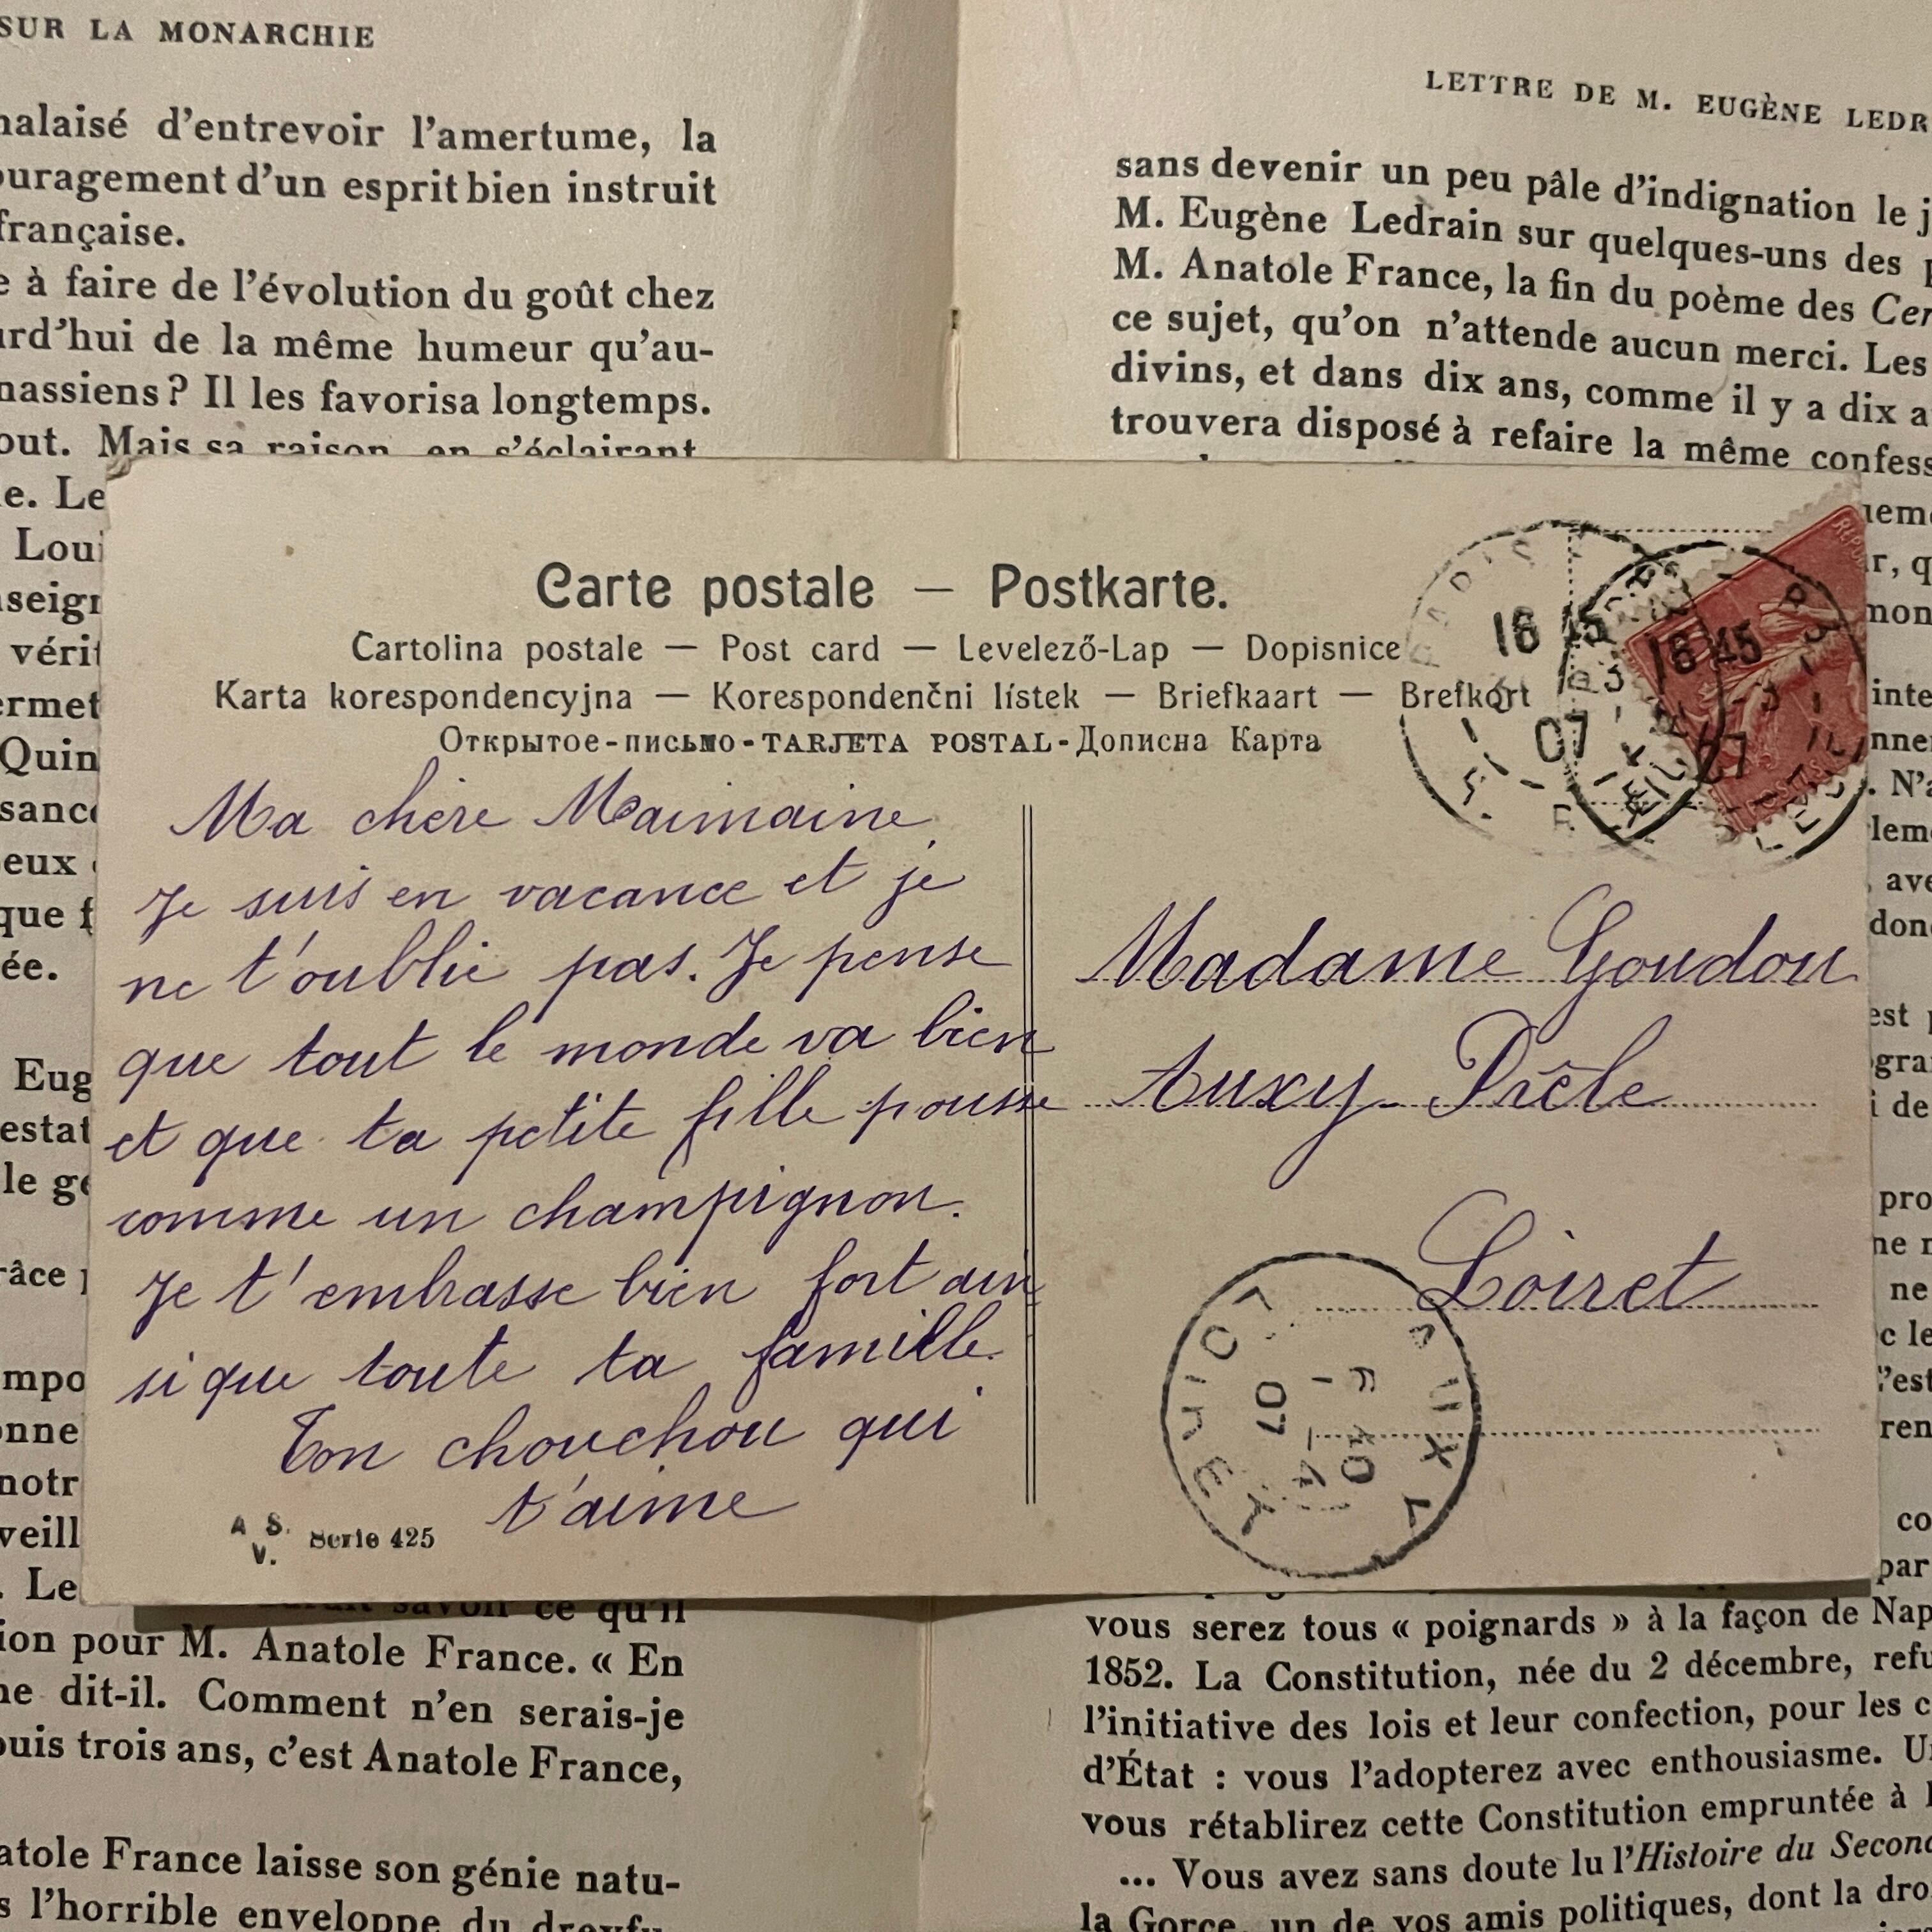 SUR LA MONARCHIE
malaisé d'entrevoir l'amertume, la
ouragement d'un esprit bien instruit
française.
e à faire de l'évolution du goût chez
urd'hui de la même humeur qu'au-
nassiens ? Il les favorisa longtemps.
out. Mais sa raison, en s'éclairant,
e. Le
Loui
nseign
vérit
ermet
Quin
sance
eux
que f
ée.
Eug
estat
le gé
râce
mpo
onne
notr
veill
. Le
savoir ce qu'il
ion pour M. Anatole France. « En
ne dit-il. Comment n'en serais-je
puis trois ans, c'est Anatole France,
natole France laisse son génie natu-
s l'horrible enveloppe du dreyfu-
LETTRE DE M. EUGÈNE LEDR
sans devenir un peu pâle d'indignation le j
M. Eugène Ledrain sur quelques-uns des p
M. Anatole France, la fin du poème des Cen
ce sujet, qu'on n'attende aucun merci. Les
divins, et dans dix ans, comme il y a dix a
trouvera disposé à refaire la même confess
uem
r, q
mon
inte
nne
. N'a
lem
, ave
don
est p
gra
i de
pro
ne n
ne
c le
l'est
ren
co
par
vous serez tous « poignards » à la façon de Nap
1852. La Constitution, née du 2 décembre, refu
l'initiative des lois et leur confection, pour les c
d'État : vous l'adopterez avec enthousiasme. Un
vous rétablirez cette Constitution empruntée à l
... Vous avez sans doute lu l'Histoire du Second
la Gorce, un de vos amis politiques, dont la dro
Carte postale — Postkarte.
Cartolina postale — Post card — Levelező-Lap — Dopisnice
Karta korespondencyjna — Korespondenčni lístek — Briefkaart — Brefkort
Открытое-письмо-TARJETA POSTAL-Дописна Карта
PARIS
16 45
07
16 45
3 - 1
07
POSTES
Ma chère Maimaine,
Je suis en vacance et je
ne t'oublie pas. Je pense
que tout le monde va bien
et que ta petite fille pousse
comme un champignon.
Je t'embrasse bien fort ain
si que toute ta famille.
Ton chouchou qui
t'aime
A. S.
V.
Serie 425
Madame Goudou
Auxy
Loiret
AUXY
LOIRET
7 40
4 - 1
07